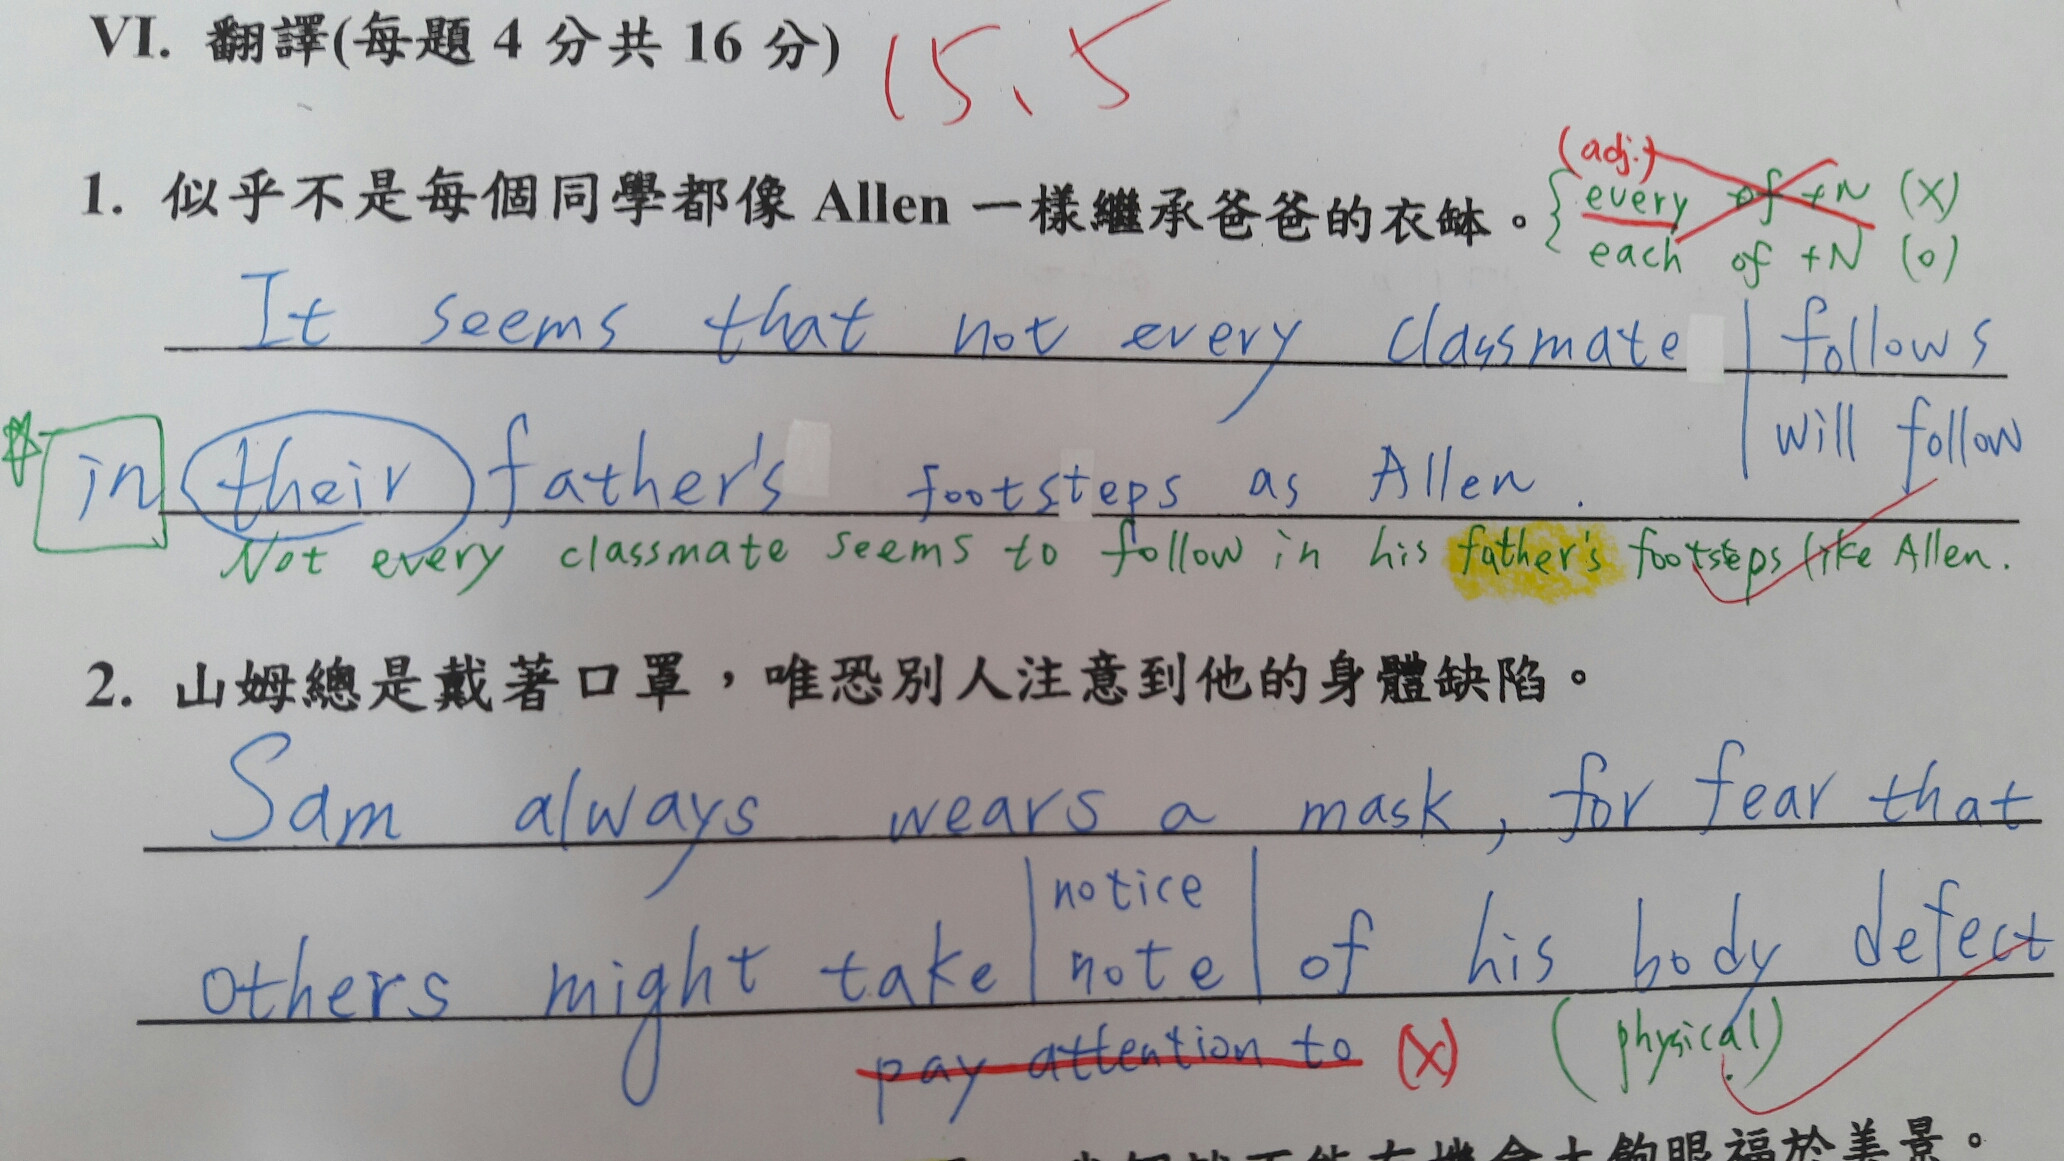 VI. 翻譯(每題 4 分共 16 分) 15.5
(adj.)
1. 似乎不是每個同學都像 Allen 一樣繼承爸爸的衣缽。 every of +N (X)
each of +N (O)
It seems that not every classmate follows
will follow
in their father's footsteps as Allen.
Not every classmate seems to follow in his father's footsteps like Allen.
2. 山姆總是戴著口罩，唯恐別人注意到他的身體缺陷。
Sam always wears a mask, for fear that
notice
others might take note of his body defect
pay attention to (X) (physical)
能有機會大飽眼福於美景。